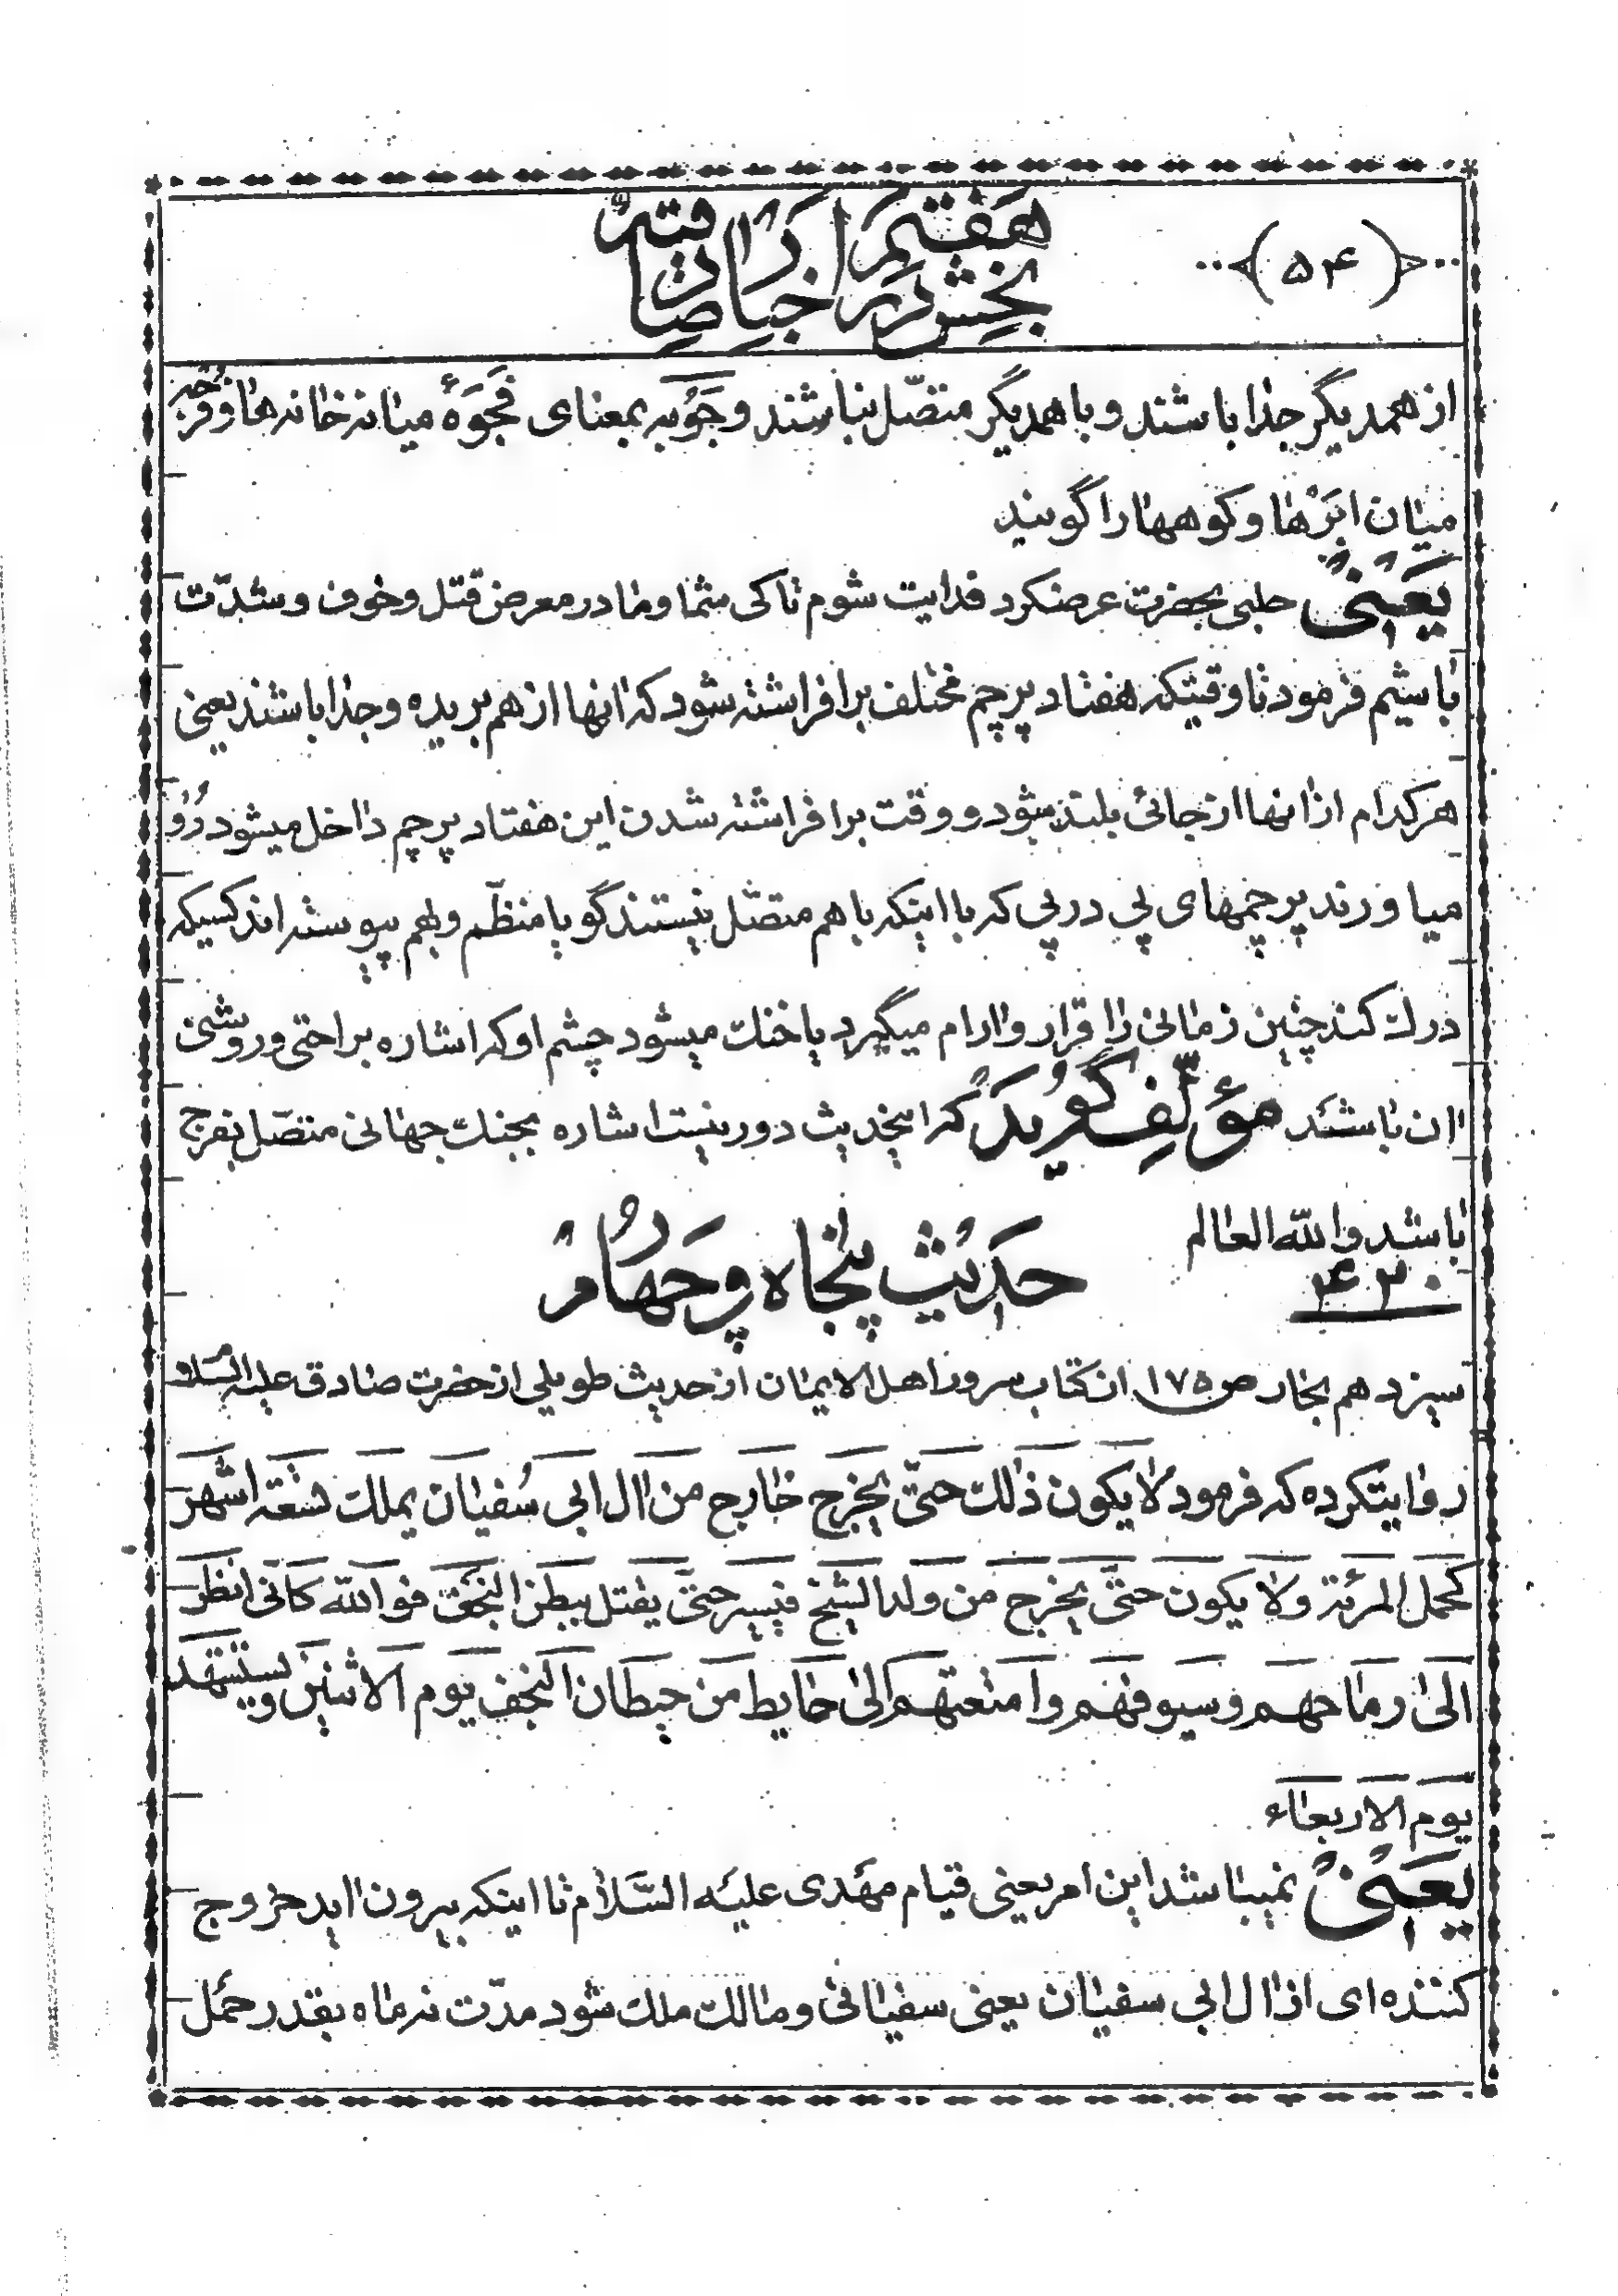 ﴿۵۴﴾
بخش هفتم در اخبار صادقیّه
از همدیگر جدا باشند و با همدیگر متصّل نباشند و جَوبه بمعنای فَجوَهٔ میانه خانه‌ها و فرجه
میان ابرها و کوهها را گویند
یَعنی حلبی بحضرت عرضکرد فدایت شوم تا کی شما و ما در معرض قتل و خوف و شدّت
باشیم فرمود تا وقتیکه هفتاد پرچم مختلف برافراشته شود که انها از هم بریده و جدا باشند یعنی
هر کدام از انها از جائی بلند شود و وقت برافراشته شدن این هفتاد پرچم داخل میشود رو
میاورند پرچمهای پی در پی که با اینکه با هم متصّل نیستند گویا منظّم و بهم پیوسته اند کسیکه
درك کند چنین زمانی را قرار و ارام میگیرد یا خنك میشود چشم او که اشاره براحتی و روشنی
ان باشد مؤلّف گوید که اینحدیث دور نیست اشاره بجنك جهانی متصّل بفرج
باشد والله العالم
۴۳۰ حدیث پنجاه و چهارم
سیزدهم بحار ص ۱۷۵ از کتاب سرور اهل الایمان از حدیث طویلی از حضرت صادق علیه السّلام
روایتکرده که فرمود لا یکون ذلك حتّی یخرج خارج من ال ابی سُفیان یملك تسعة اشهر
کحمل المرئة ولا یکون حتّی یخرج من ولد الشیخ فیسیر حتّی یقتل ببطن النجف فو الله کانّی انظر
الی رماحهم وسیوفهم وامتعتهم الی حایط من حیطان النجف یوم الاثنین ویستشهد
یوم الاربعاء
یَعنی نمیباشد این امر یعنی قیام مهدی علیه السّلام تا اینکه بیرون اید خروج
کننده ای از ال ابی سفیان یعنی سفیانی و مالك ملك شود مدّت نه ماه بقدر حمل